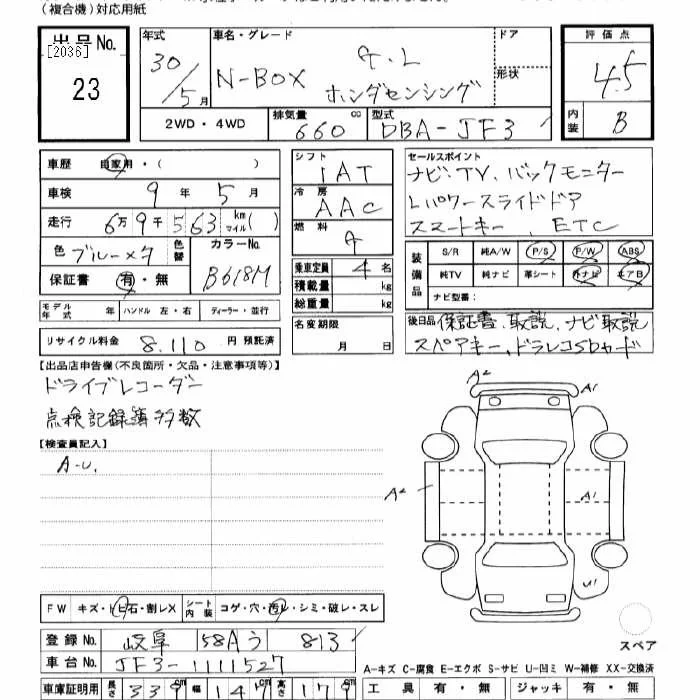 （複合機）対応用紙
出品No.
[2036]
23
年式
30/5月
車名・グレード
N-BOX G・L
ホンダセンシング
ドア
形状
評価点
4.5
内装
B
2WD・4WD
排気量
660cc
型式
DBA-JF3
車歴 自家用・( )
車検 9年5月
走行 6万9千563 km マイル( )
色 ブルーメタ 色替
カラーNo.
B618M
保証書 有・無
モデル年式 年 ハンドル 左・右 ディーラー・並行
リサイクル料金 8.110円 預託済
シフト
IAT
冷房
AAC
燃料
G
乗車定員 4名
積載量 kg
総重量 kg
名変期限
月 日
セールスポイント
ナビ・TV、バックモニター
Lパワースライドドア
スマートキー、ETC
装備品
S/R 純A/W P/S P/W ABS
純TV 純ナビ 革シート 外ナビ エアB
ナビ型番：
後日品 保証書、取説、ナビ取説
スペアキー、ドラレコSDカード
【出品店申告欄(不良箇所・欠品・注意事項等)】
ドライブレコーダー
点検記録簿多数
【検査員記入】
A-U.
A2
A1
A2
A1
U1
FW キズ・トビ石・割レX シート内装 コゲ・穴・汚レ・シミ・破レ・スレ
スペア
登録No. 岐阜 58Aう 813
車台No. JF3-1111527
A-キズ C-腐食 E-エクボ S-サビ U-凹ミ W-補修 XX-交換済
車庫証明用 長さ 339 幅 147 高さ 179
工具 有・無 ジャッキ 有・無